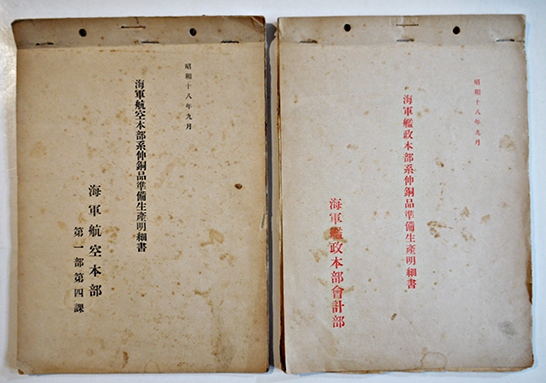 昭和十八年九月
海軍航空本部系伸銅品準備生産明細書
海軍航空本部
第一部第四課
昭和十八年九月
海軍艦政本部系伸銅品準備生産明細書
海軍艦政本部會計部